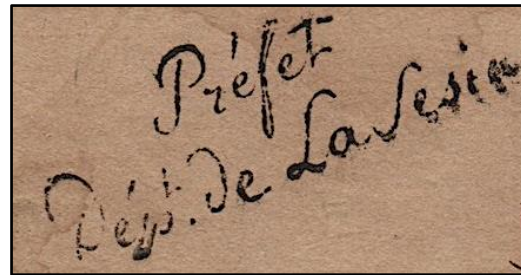 Préfet
Dépt. De La Sesia